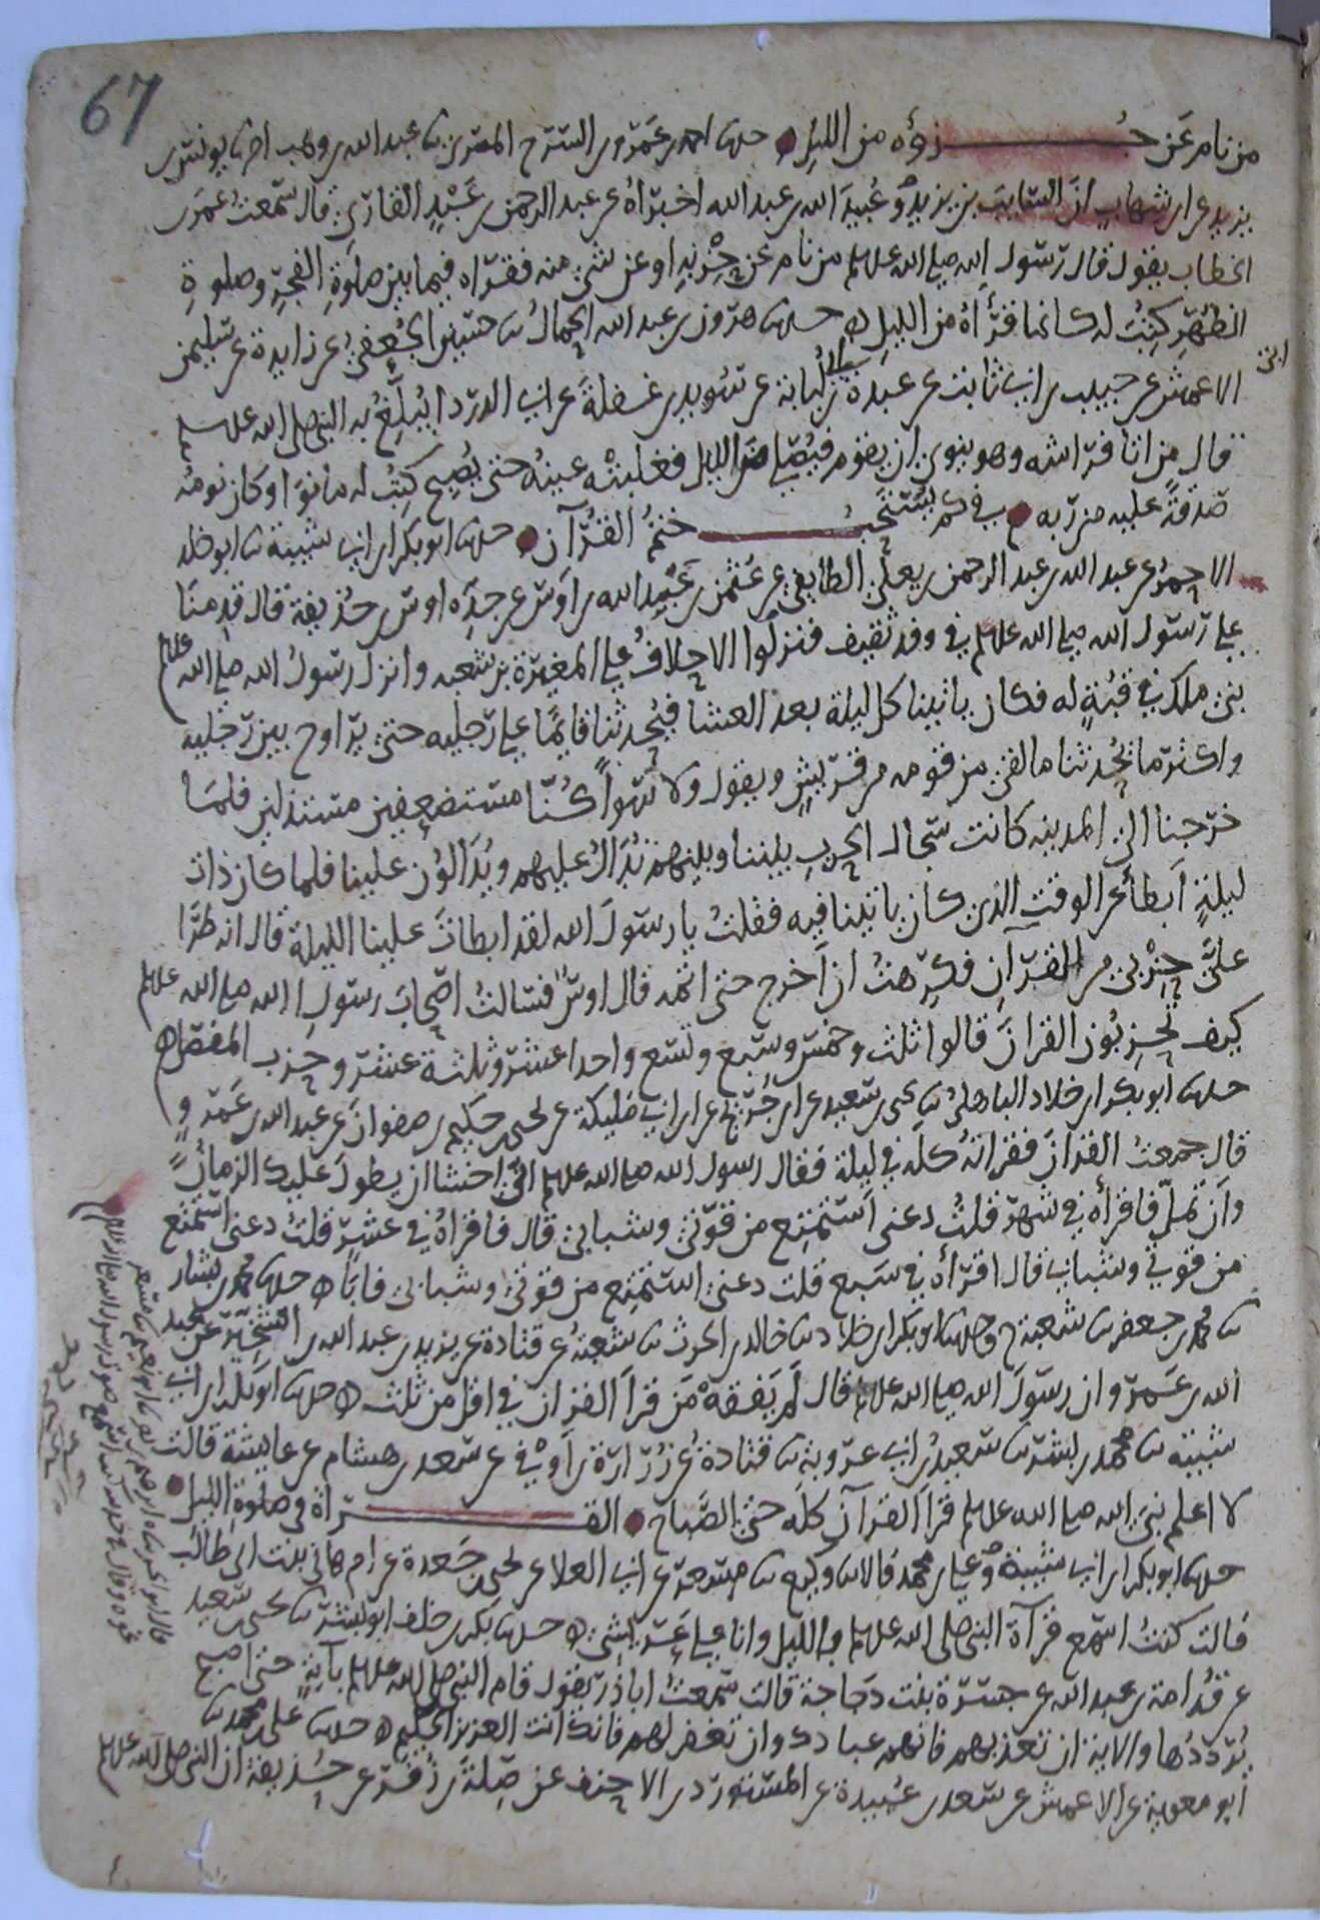 67
من نام عن جزؤه من الليل حدثنا احمد بن عمرو بن السرح المصري ثنا عبد الله بن وهب اخبرنا يونس بن
يزيد عن ابن شهاب ان السايب بن يزيد وعُبيدَ الله بن عبد الله اخبراه عن عبد الرحمن بن عَبْدٍ القاريّ قال سمعتُ عمر بن
الخطاب يقول قال رسول الله صلى الله عليه وسلم من نام عن حِزْبهِ او عن شئ منه فقراه فيما بين صلوةِ الفجرِ وصلوةِ
الظهرِ كُتِبَ له كانما قرأهُ من الليلِ حدثنا هرون بن عبد الله الحمالُ ثنا حسين الجُعفيُّ عن زايدة عن سليمن
الاعمش عن حبيب بن ابي ثابت عن عبدة بن ابي لبابة عن سُويد بن غفلةَ عن ابي الدردا يُبلِّغُ به النبي صلى الله عليه وسلم
قال من اتا فراشه وهو ينوي ان يقوم فيُصلي من الليل فغلبتْه عينهُ حتى يُصبح كُتِبُ له ما نوَا وكان نومُه
صدقةً عليه من ربه في كم يُستحبُّ ختمُ القُرآن حدثنا ابو بكر بن ابي شيبة ثنا ابو خلد
الاحمرُ عن عبد الله بن عبد الرحمن بن يعلَى الطايفي عن عُثمن بن عَبْدِ الله بن اَوس عن جدّه اوس بن حُذيفة قال قدِمنا
على رسول الله صلى الله عليه وسلم في وفد ثقيف فنزلُوا الاحلافُ على المغيرة بن شعبه وانزل رسولُ الله صلى الله عليه وسلم
بني ملك في قبّةٍ له فكان ياتينا كل ليلة بعد العشا فيُحدثنا قايمًا على رجليه حتى يراوح بين رجليه
واكثر ما يُحدثنا ما لقي من قومه من قريشٍ ويقول ولا سَوا كُنّا مستضعفين مستذلين فلمّا
خرجنا الى المدينه كانت سجال الحربِ بيننا وبينهم نُدَالُ عليهم ويُدَالُون علينا فلما كان ذات
ليلةٍ اَبطأ عن الوقت الذي كان ياتينا فيه فقلتُ يا رسولَ الله لقد ابطاتَ علينا الليلة قال انه طرَا
عليَّ حِزْبي من القرآن فكرهتُ ان اَخرج حتى اتمه قال اوسٌ فسالتُ اصحابَ رسولِ الله صلى الله عليه وسلم
كيف تُحزبُون القرانَ قالوا ثلث وخمس وسبع وتسع واحدا عشر وثلثة عشر وحزب المفصل
حدثنا ابو بكر بن خلاد الباهليُ ثنا يحيى بن سعيد عن ابن جُريج عن ابن ابي مليكة عن يحيى بن حكيم بن صفوانَ عن عبد الله بن عَمرو
قال جمعتُ القرانَ فقراتهُ كله في ليلة فقال رسول الله صلى الله عليه وسلم انّي اخشا ان يطولَ عليك الزمانُ
واَن تملّ فاقرأه في شهر قلتُ دعنى اَستمتع من قوّتي وشبابي قال فاقراهُ في عشرٍ قلتُ دعني استمتع
من قوتي وشبابي قال اقرأه في سَبع قلت دعني استمتع من قوتي وشبابي فاَبَا حدثنا محمد بن بشار
ثنا محمد بن جعفر ثنا شعبة ح وحدثنا ابو بكر بن خلاد ثنا خالد بن الحرث ثنا شعبةُ عن قتادة عن يزيد بن عبد الله بن الشخير عن عبد
الله بن عَمرو ان رسولَ الله صلى الله عليه وسلم قال لم يَفقهْ من قرأ القرآنَ في اقل من ثلث حدثنا ابو بكر بن ابي
شيبة ثنا محمد بن بشر ثنا سعيدُ بن ابي عروبة ثنا قتادةُ عن زُرارة بن اَوفى عن سعد بن هشام عن عايشة قالت
لا اعلم نبيَ الله صلى الله عليه وسلم قراَ القرآنَ كله حتى الصَّباح القراة في صلوة الليل
حدثنا ابو بكر بن ابي شيبة وعلى بن محمد قالا ثنا وكيع ثنا مِسعر عن ابي العلاء عن يحيى بن جَعدة عن ام هاني بنت ابي طالب
قالت كنتُ اسمع قرآة النبي صلى الله عليه وسلم بالليل وانا على عريشي حدثنا بكر بن خلف ابو بشر ثنا يحيى بن سعيد
عن قُدامة بن عبد الله عن جسرة بنت دَجاجة قالت سمعتُ اباذر يقول قام النبي صلى الله عليه وسلم بآيةٍ حتى اصبح
يُرددُها والاية ان تعذبهم فانهم عبادك وان تغفر لهم فانك انت العزيز الحكيم حدثنا علي بن محمد ثنا
ابو معوية عن الاعمش عن سعد بن عُبيدة عن المستورد بن الاحنف عن صِلةَ بن زُفر عن حُذيفة ان النبي صلى الله عليه وسلم